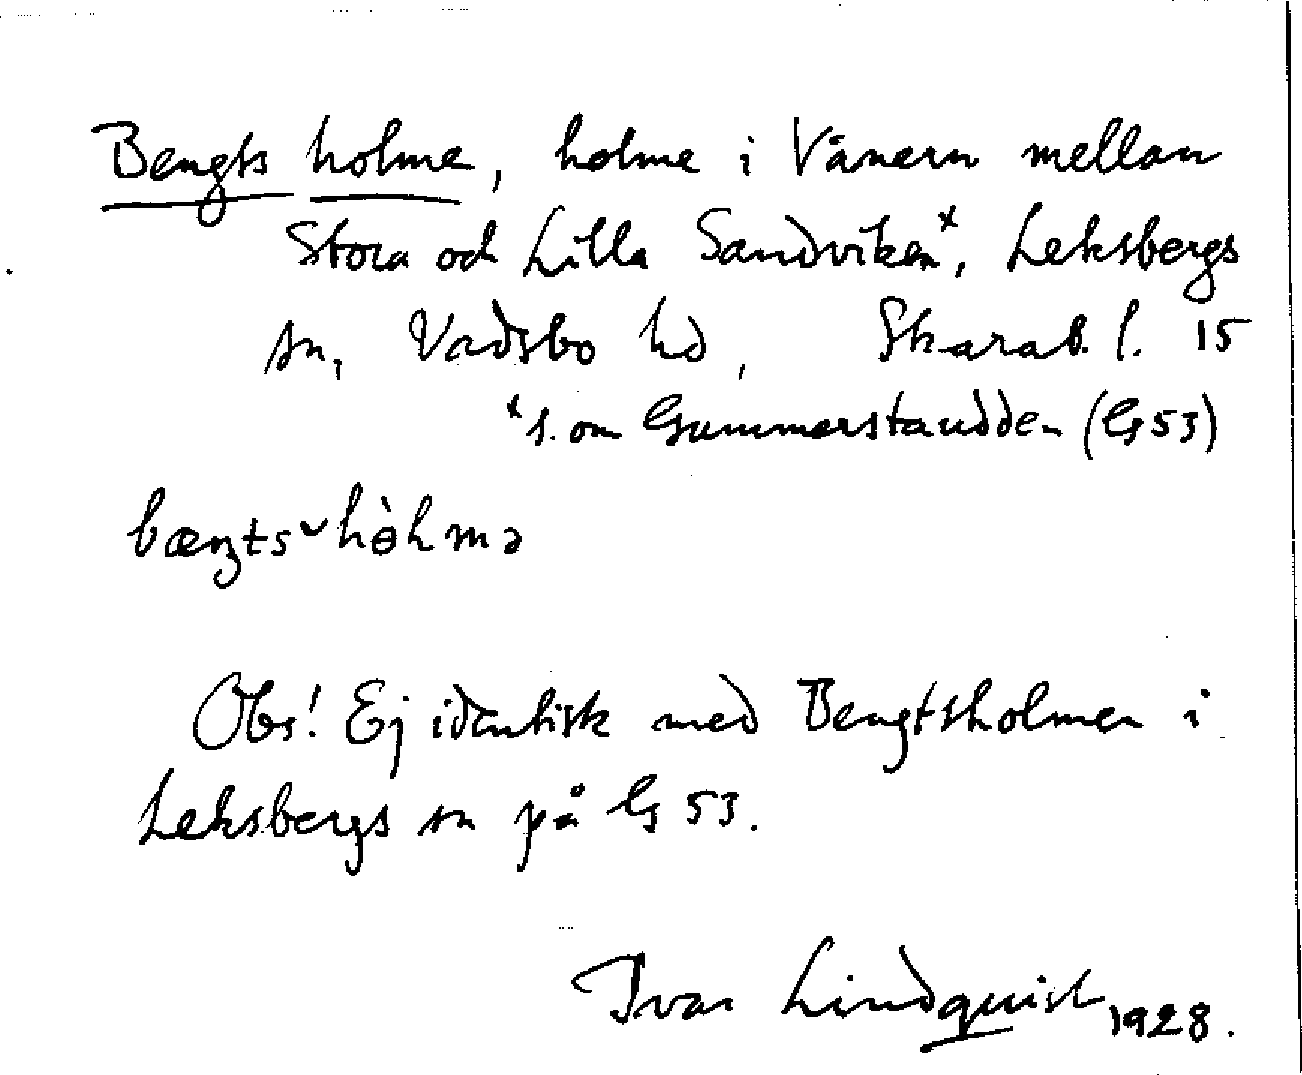 Bengts holme, holme i Vänern mellan
Stora och Lilla Sandviken*, Leksbergs
sn, Vadsbo hd, Skarab. l. 15
*s. om Gummerstaudden (G 53)
Obs! Ej identisk med Bengtsholmen i
Leksbergs sn på G 53.
Ivar Lindquist 1928.